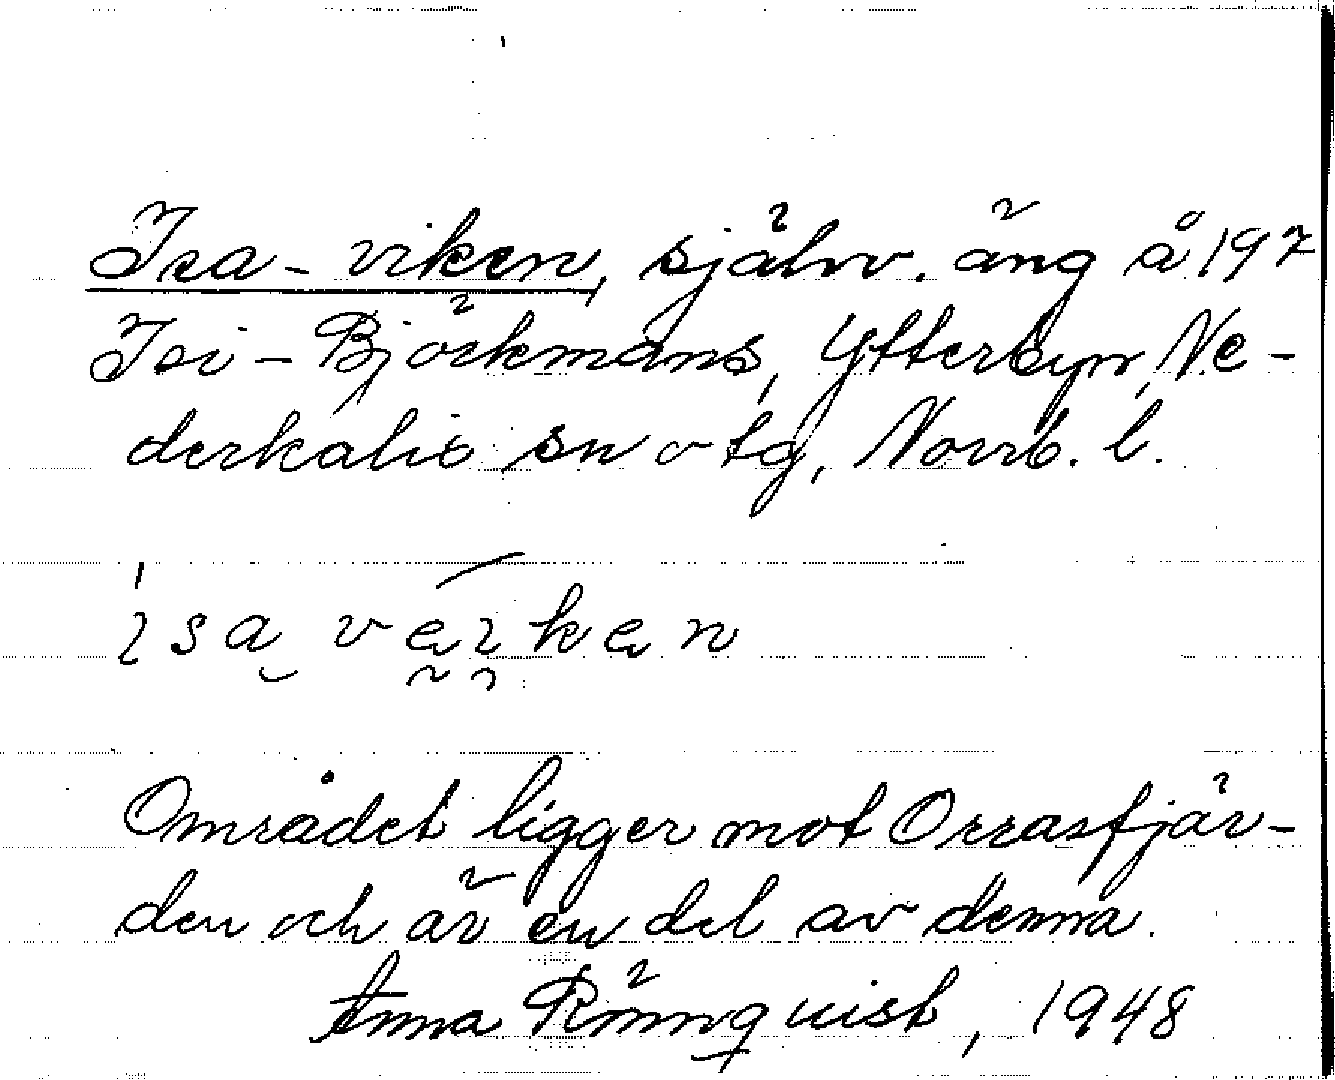 Isa-viken, självv. äng å 197
Isi-Björkmans, Ytterbyn, Ne-
derkalix sn o tg, Norrb. l.
isa veiken
Området ligger mot Orrasfjär-
den och är en del av denna.
Anna Rönnquist, 1948